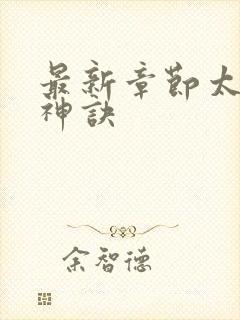 最新章节太
神诀
余智德